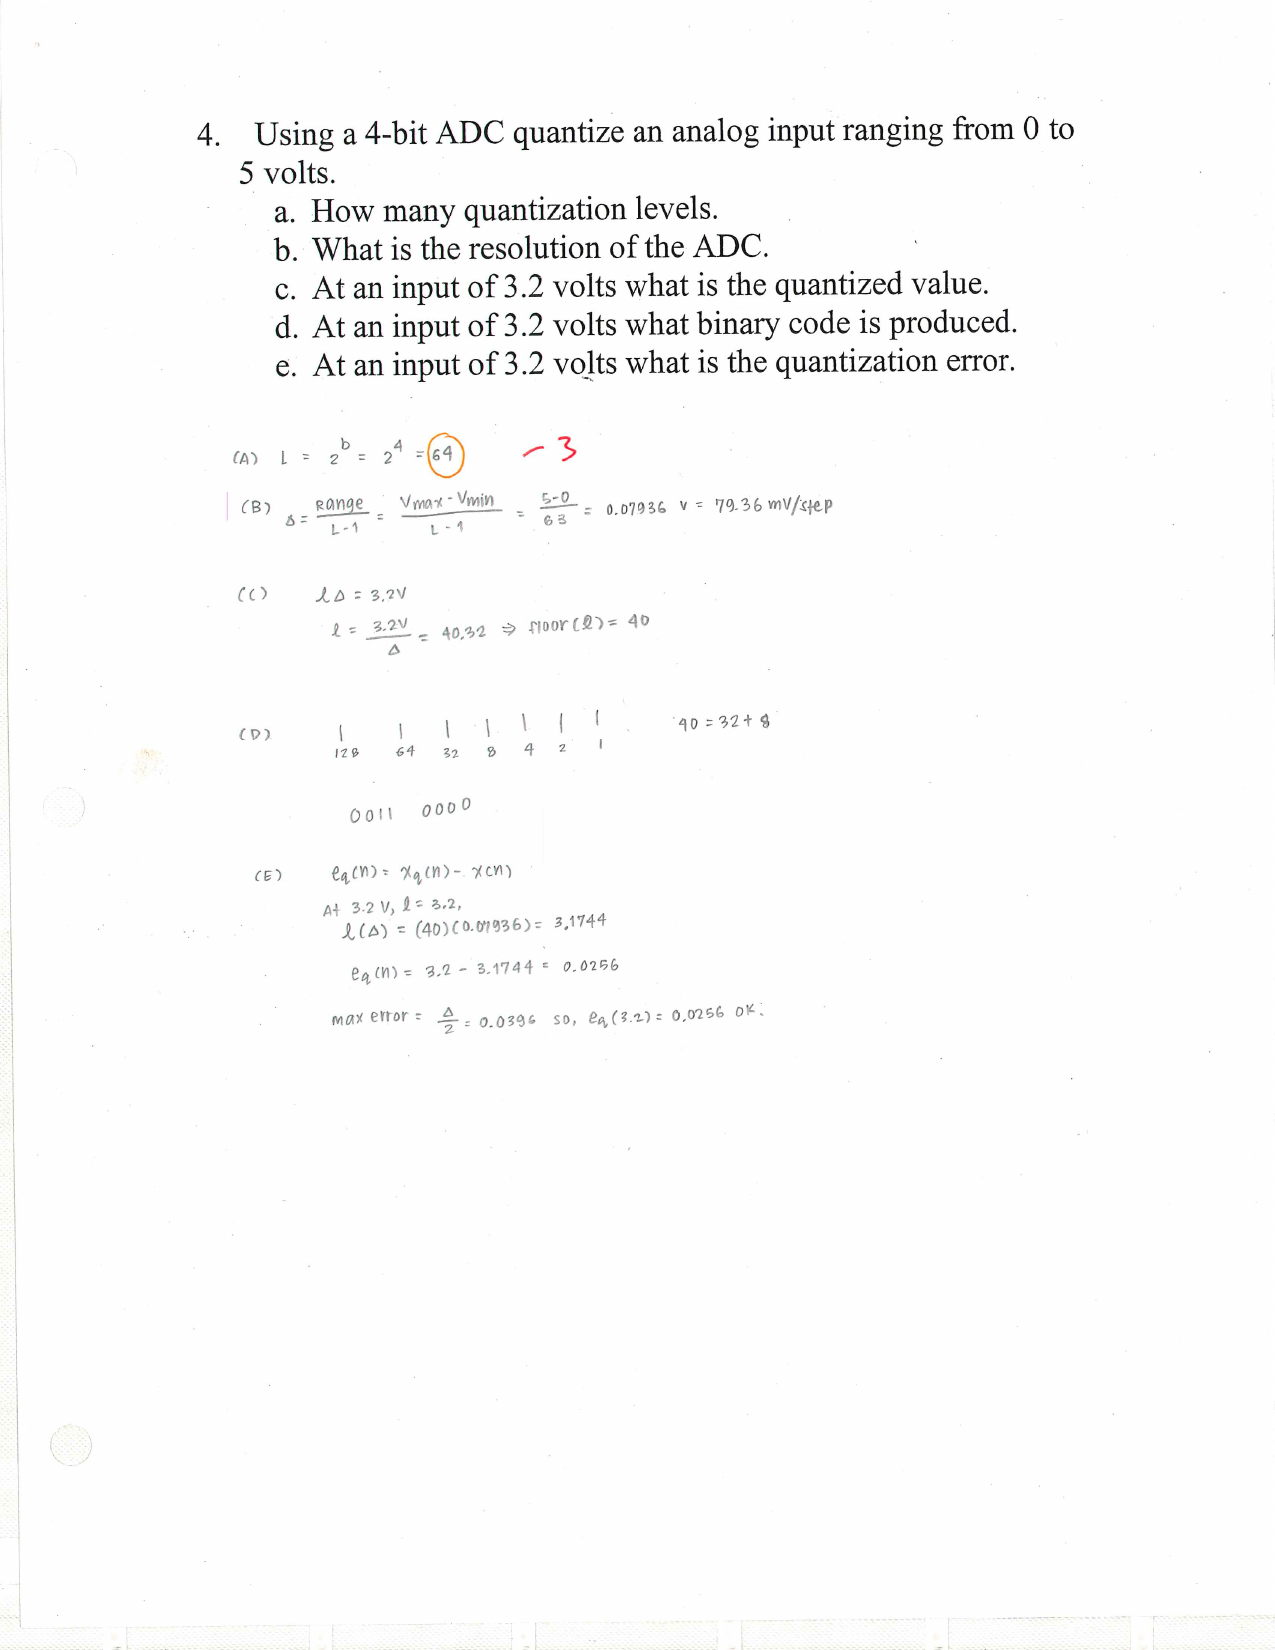 4. Using a 4-bit ADC quantize an analog input ranging from 0 to
5 volts.
a. How many quantization levels.
b. What is the resolution of the ADC.
c. At an input of 3.2 volts what is the quantized value.
d. At an input of 3.2 volts what binary code is produced.
e. At an input of 3.2 volts what is the quantization error.
(A) L = 2^b = 2^4 = 64 - 3
(B) Δ = Range / L-1 = Vmax - Vmin / L-1 = 5-0 / 63 = 0.07936 V = 79.36 mV/step
(C) lΔ = 3.2V
l = 3.2V / Δ = 40.32 ⇒ floor(l) = 40
(D) | | | | | | | 40 = 32 + 8
128 64 32 8 4 2 1
0011 0000
(E) eq(n) = xq(n) - x(n)
At 3.2 V, l = 3.2,
l(Δ) = (40)(0.07936) = 3.1744
eq(n) = 3.2 - 3.1744 = 0.0256
max error = Δ/2 = 0.0396 so, eq(3.2) = 0.0256 OK.